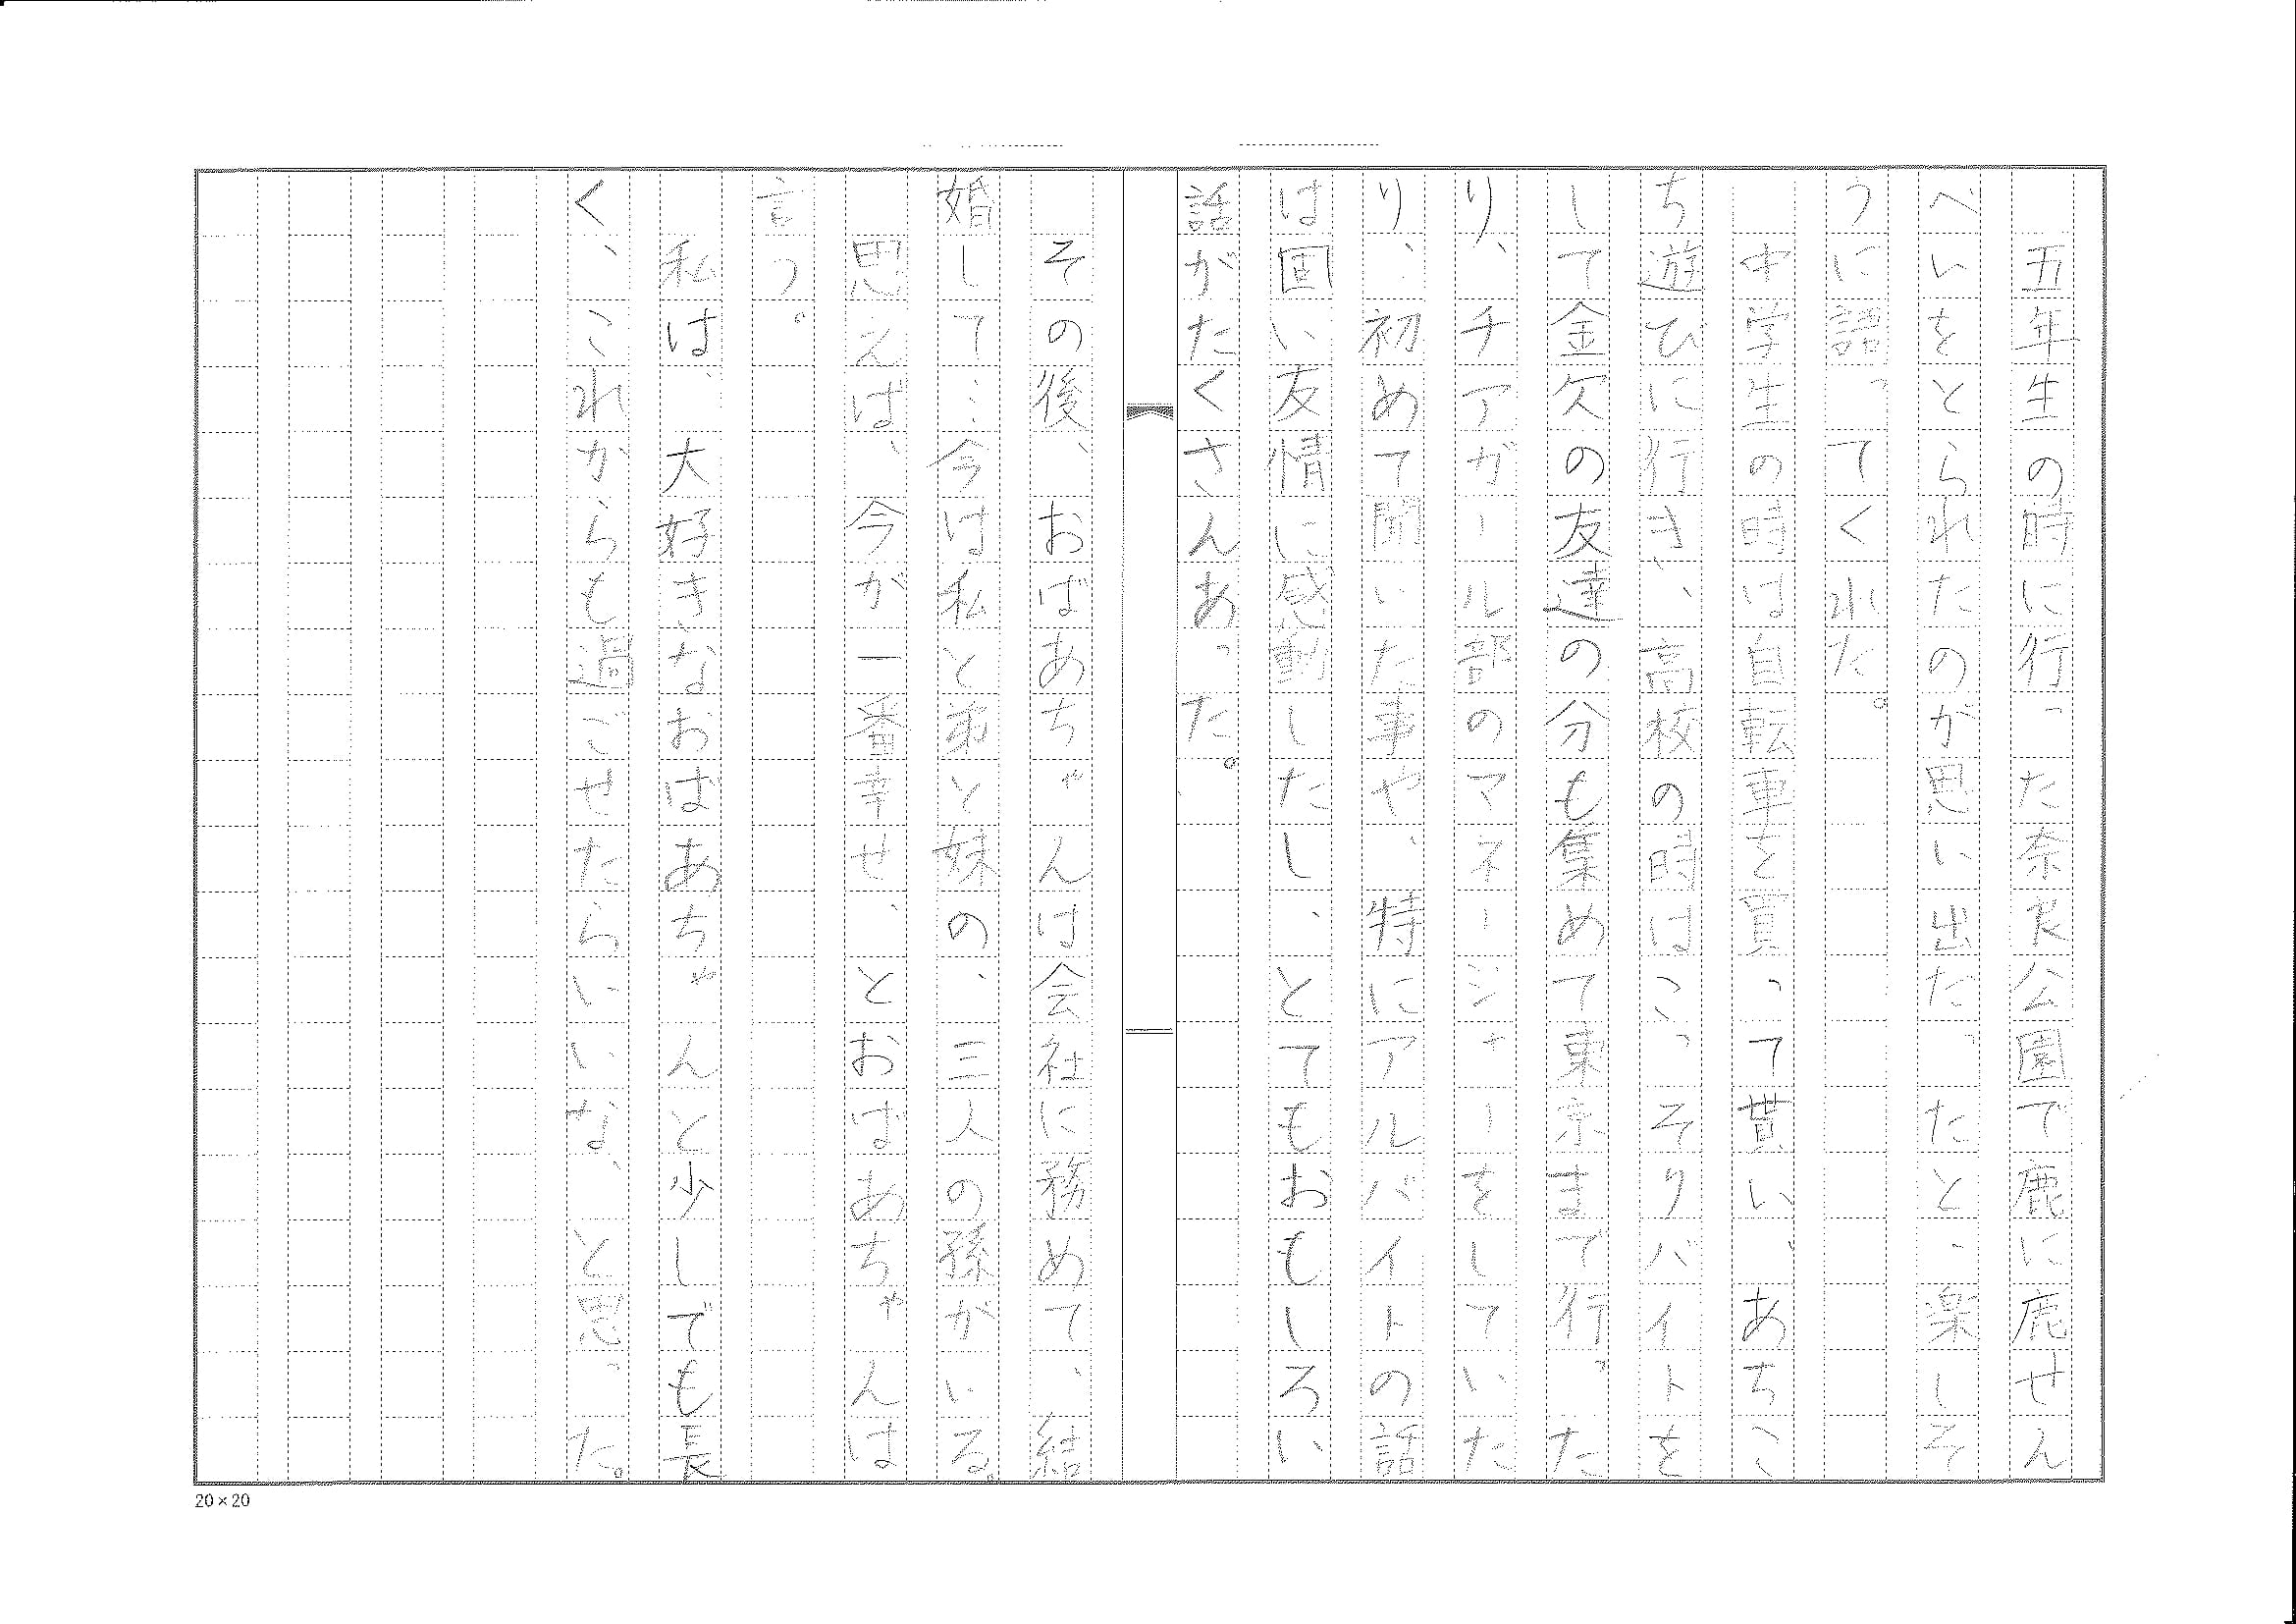 五年生の時に行った奈良公園で鹿に鹿せん
べいをとられたのが思い出だったと、楽しそ
うに語ってくれた。
中学生の時は自転車を買って貰い、あちこ
ち遊びに行き、高校の時はこっそりバイトを
して金欠の友達の分も集めて東京まで行った
り、チアガール部のマネージャーをしていた
り、初めて聞いた事や、特にアルバイトの話
は固い友情に感動したし、とてもおもしろい
話がたくさんあった。
その後、おばあちゃんは会社に務めて、結
婚して…今は私と弟と妹の、三人の孫がいる。
思えば、今が一番幸せ、とおばあちゃんは
言う。
私は、大好きなおばあちゃんと少しでも長
く、これからも過ごせたらいいな、と思った。
20×20